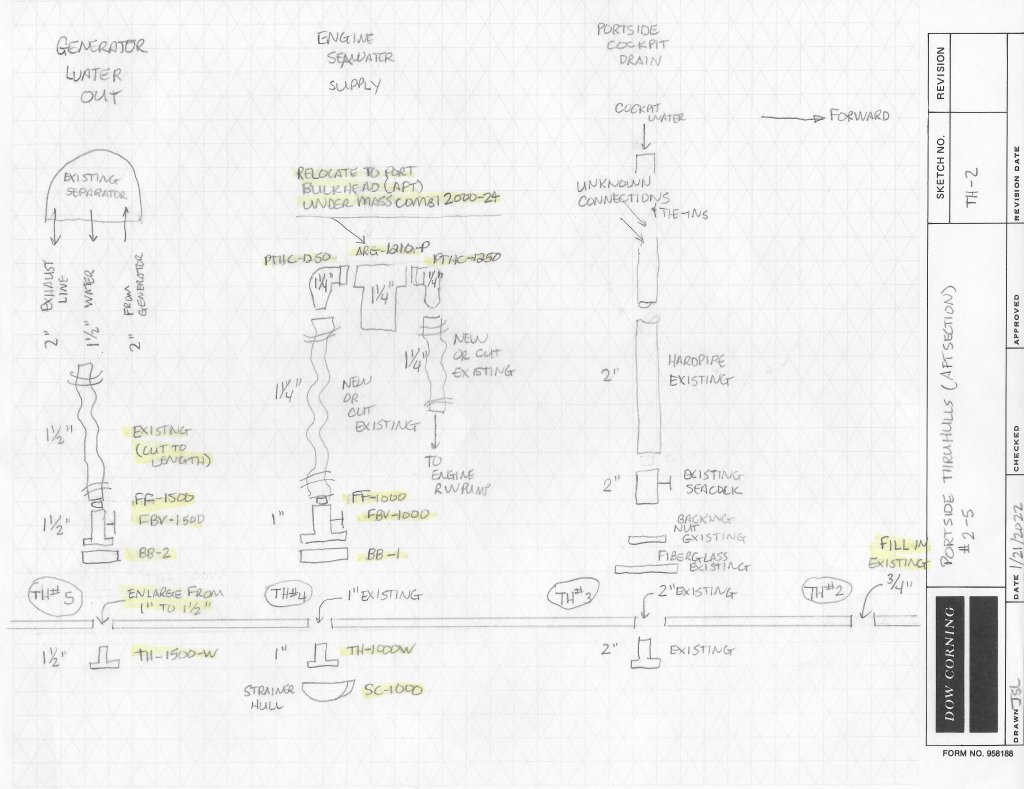 GENERATOR
WATER
OUT
ENGINE
SEAWATER
SUPPLY
PORTSIDE
COCKPIT
DRAIN
COCKPIT
WATER
FORWARD
EXISTING
SEPARATOR
RELOCATE TO PORT
BULKHEAD (AFT)
UNDER MASS COMBI 2000-24
UNKNOWN
CONNECTIONS
TIE-INS
2" EXHAUST
LINE
1½" WATER
2" FROM
GENERATOR
PTHC-1250
ARG-1210-P
PTHC-1250
1¼"
1¼"
1¼"
1¼"
NEW
OR
CUT
EXISTING
1¼"
NEW
OR CUT
EXISTING
TO
ENGINE
RW PUMP
2"
HARDPIPE
EXISTING
1½"
EXISTING
(CUT TO
LENGTH)
FF-1500
1½"
FBV-1500
BB-2
FF-1000
1"
FBV-1000
BB-1
2"
EXISTING
SEACOCK
BACKING
NUT
EXISTING
FIBERGLASS
EXISTING
FILL IN
EXISTING
3/4"
TH#5
ENLARGE FROM
1" TO 1½"
TH#4
1" EXISTING
TH#3
2" EXISTING
TH#2
1½"
TH-1500-W
1"
TH-1000W
2"
EXISTING
STRAINER
HULL
SC-1000
REVISION
SKETCH NO.
TH-2
REVISION DATE
PORTSIDE THRUHULLS (AFT SECTION)
#2-5
APPROVED
CHECKED
DATE 1/21/2022
DRAWN JSL
DOW CORNING
FORM NO. 958188